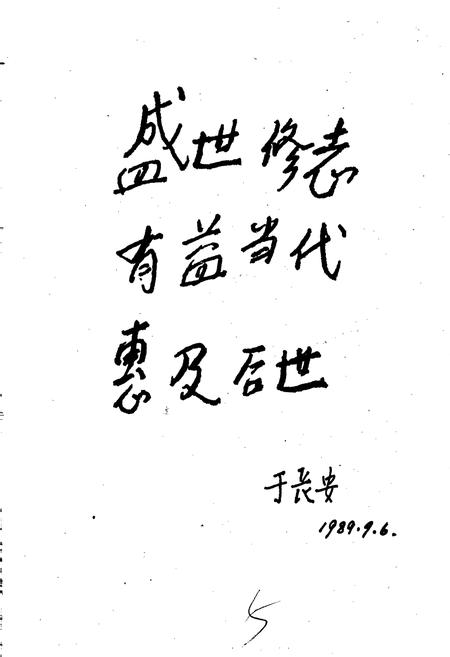 盛世修志
有益当代
惠及后世
于长安
1989.9.6.
5